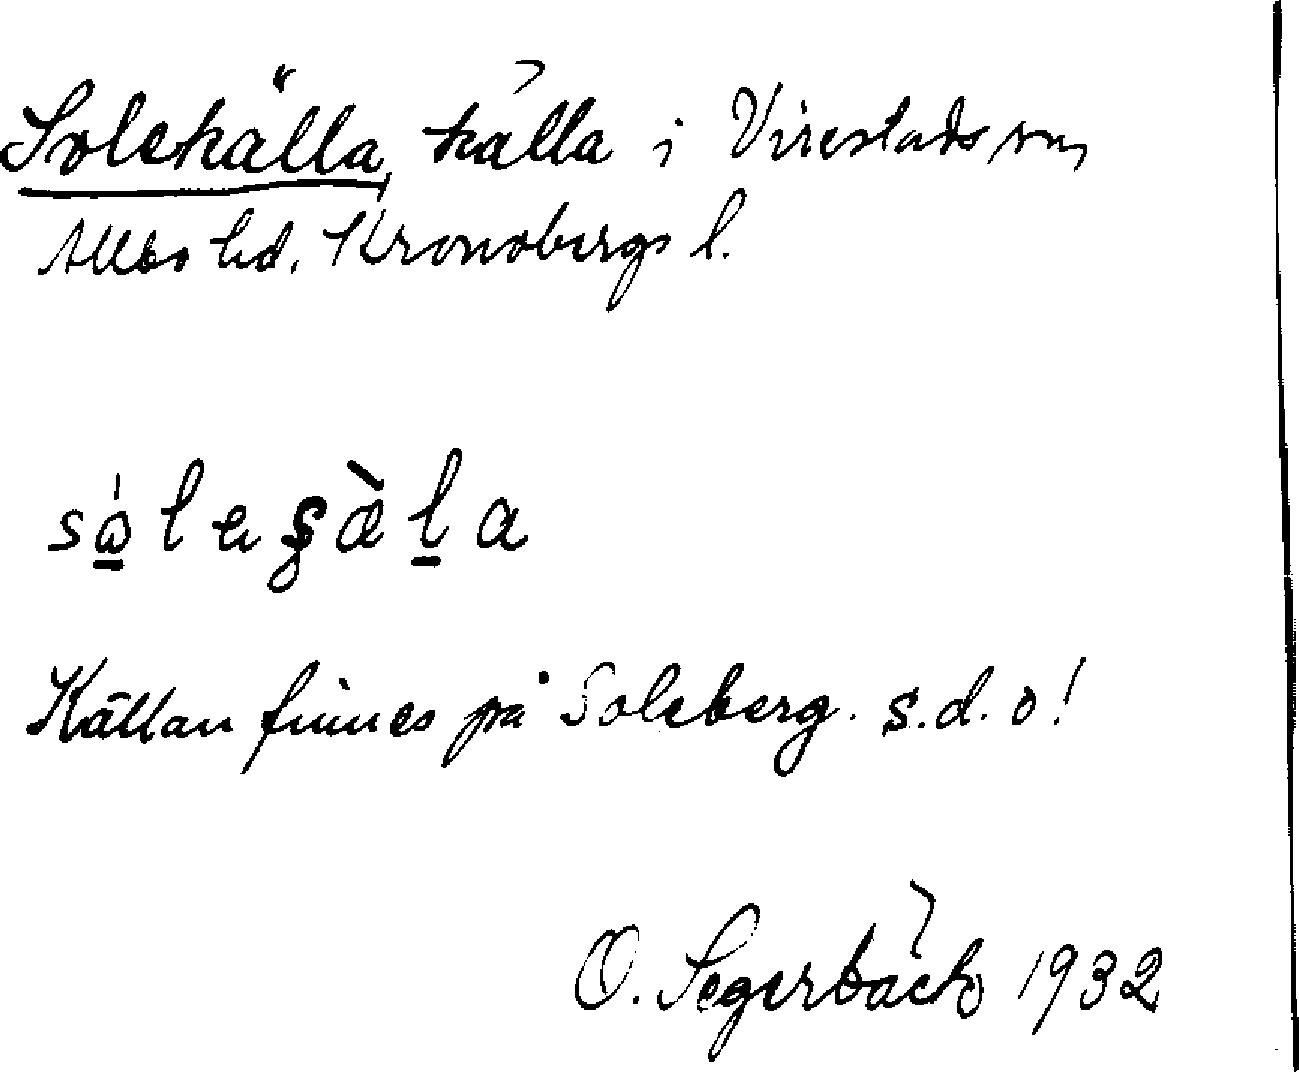 Solekälla, källa i Virestads sn,
Allbo hd. Kronobergs l.
Källan finnes på Soleberg. s.d.o!
O. Segerbäck 1932